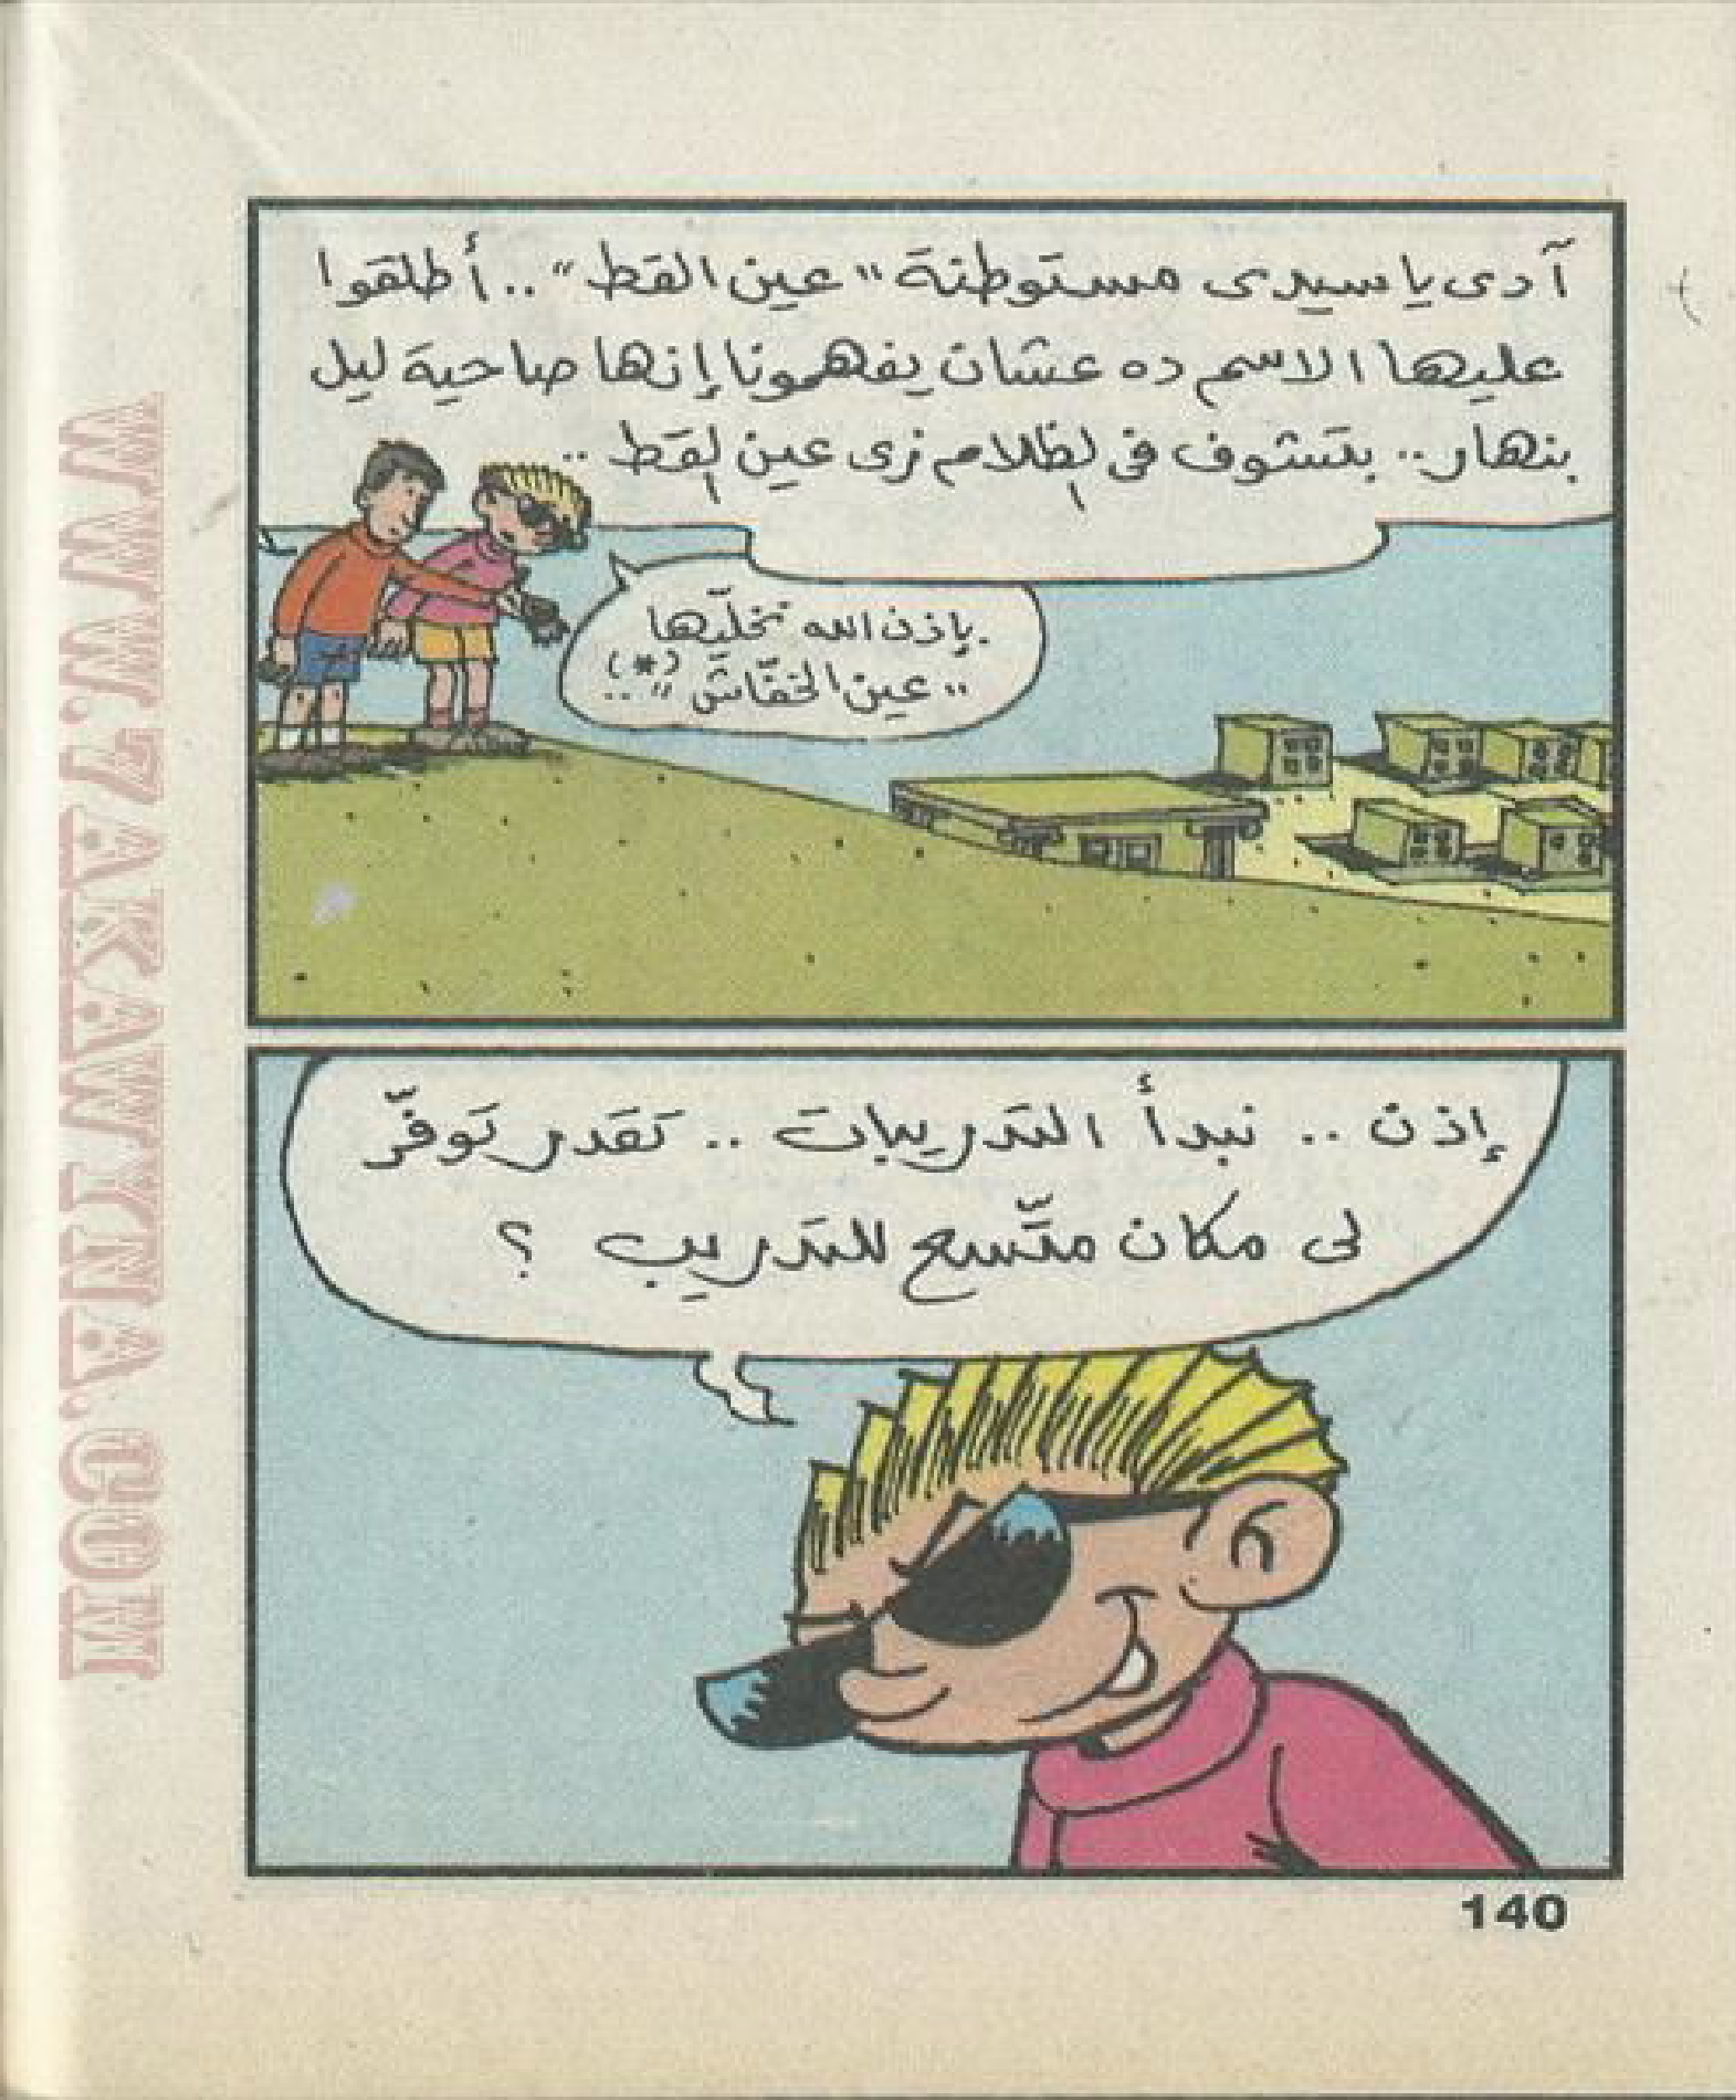 آدى يا سيدى مستوطنة "عين القط".. أطلقوا
عليها الاسم ده عشان يفهمونا إنها صاحية ليل
بنهار.. بتشوف فى الظلام زى عين القط ..
بإذن الله نخلّيها
"عين الخفّاش" (*)..
إذن .. نبدأ التدريبات .. تقدر توفّر
لى مكان متّسع للتدريب ؟
140
WWW.7AKAWITNA.COM